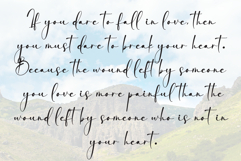 If you dare to fall in love, then
you must dare to break your heart.
Because the wound left by someone
you love is more painful than the
wound left by someone who is not in
your heart.